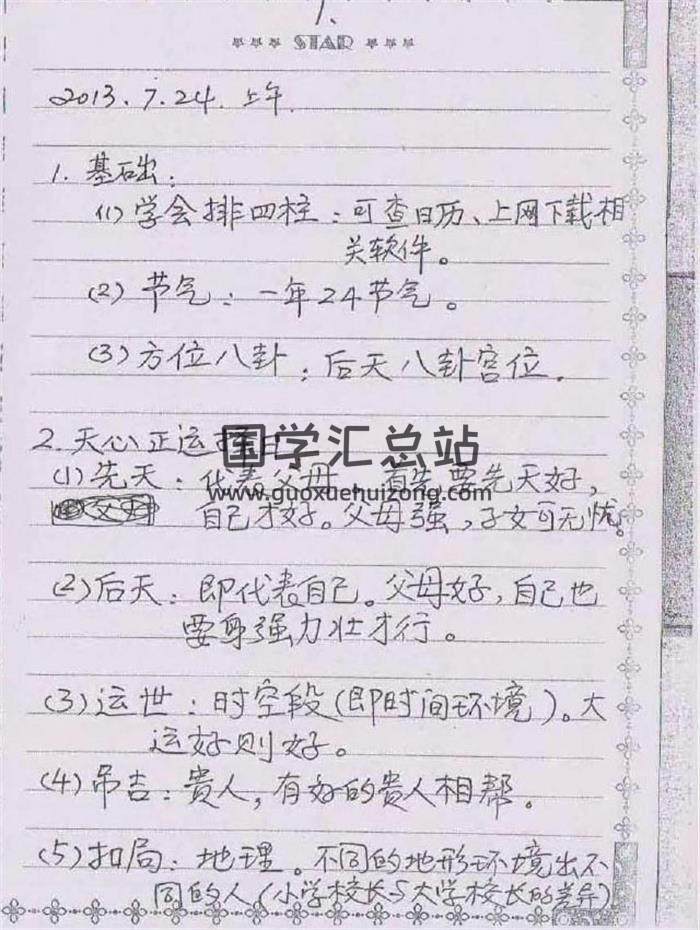 1、
*** STAR ***
2013.7.24.上午.
1.基础:
(1)学会排四柱:可查日历、上网下载相
关软件。
(2)节气:一年24节气。
(3)方位八卦:后天八卦宫位.
国学汇总站
2.天心正运
(1)先天:代表父母 首先要先天好,
www.guoxuehuizong.com
自己才好。父母强,子女可无忧。
(2)后天:即代表自己。父母好,自己也
要身强力壮才行。
(3)运世:时空段(即时间环境)。大
运好则好。
(4)吊吉:贵人,有好的贵人相帮。
(5)扣局:地理。不同的地形环境出不
同的人(小学校长与大学校长的差异)